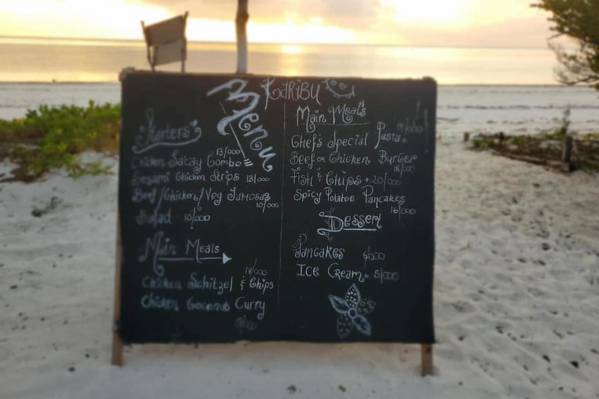 Karibu
Menu
Starters
Chicken Satay Gombo 13/000
Sesame Chicken Strips 13/000
Beef/Chicken/Veg Jumosas 10/000
Salad 10/000
Main Meals
Chicken Schitzel & Chips 18/000
Chicken Coconut Curry
Main Meals
Chef's Special Pasta
Beef or Chicken Burger
Fish & Chips 20/000
Spicy Potatoe Pancakes 16/000
Dessert
Pancakes
Ice Cream 5/000